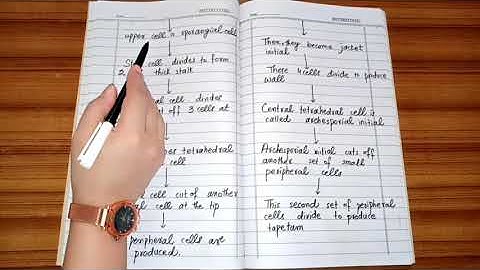 upper cell = sporangial cell
cell divides to form
2 thick stalk
cell divides
of 3 cells at
tetrahedral
cell
cell cut of another
cell at the tip
peripheral cells are
produced.
Then, they become jacket
initial
These 4 cells divide to produce
wall
Central tetrahedral cell is
called archesporial initial
Archesporial initial cuts off
another set of small
peripheral cells
This second set of peripheral
cells divide to produce
tapetum